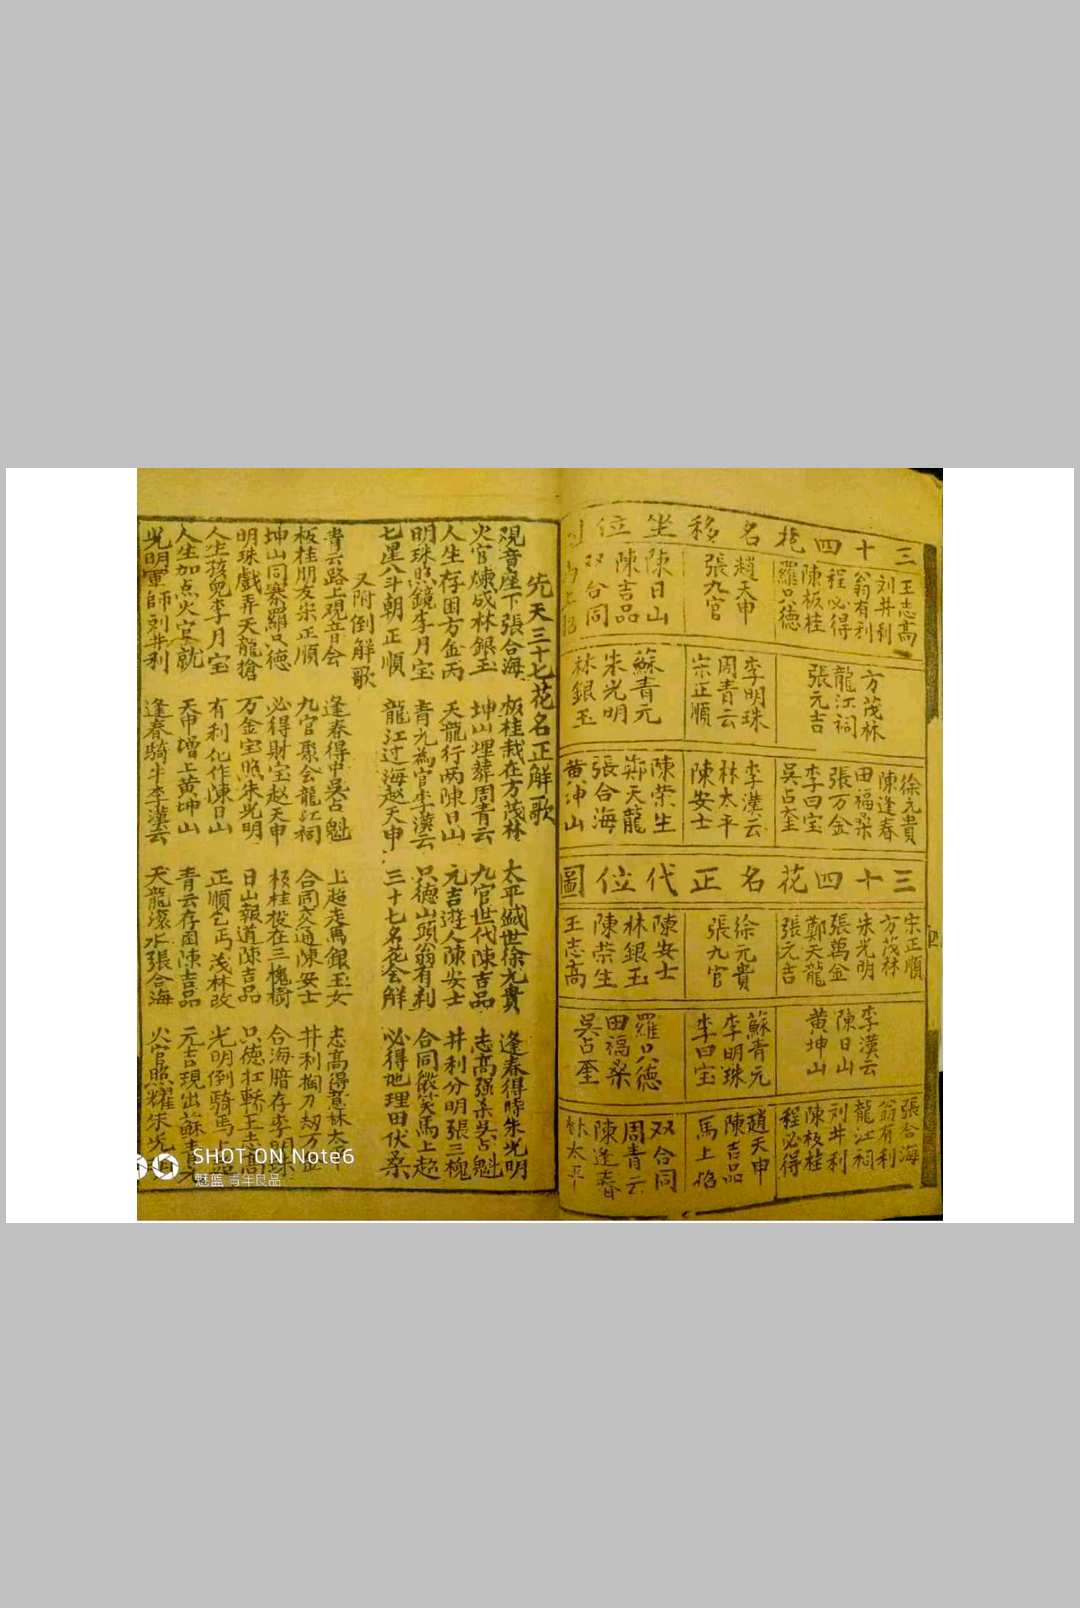 三十四花名移坐位
王志高
刘井利
翁有利
程必得
陳板桂
羅只德
趙天申
張九官
陳日山
陳吉品
双合同
方茂林
龍江祠
張元吉
李明珠
周青云
宋正順
蘇青元
朱光明
林銀玉
徐元貴
陳逢春
田福桑
張万金
李曰宝
吳占奎
李漢云
林太平
陳安士
陳荣生
鄭天龍
張合海
黄坤山
三十四花名正代位圖
宋正順
方茂林
朱光明
張萬金
鄭天龍
張元吉
徐元貴
張九官
陳安士
林銀玉
陳荣生
王志高
李漢云
陳日山
黄坤山
蘇青元
李明珠
李曰宝
羅只德
田福桑
吳占奎
張合海
翁有利
龍江祠
刘井利
陳板桂
程必得
趙天申
陳吉品
馬上招
双合同
周青云
陳逢春
林太平
先天三十七花名正解歌
观音座下張合海 板桂栽在方茂林 太平盛世徐元貴 逢春得時朱光明
火官煉成林銀玉 坤山埋葬周青云 九官世代陳吉品 志高强杀吳占魁
人生存困方金丙 天龍行两陳日山 元吉遊人陳安士 井利分明張三槐
明珠照鏡李月宝 青元為官李漢云 只德山頭翁有利 合同㒓笑馬上超
七星八斗朝正順 龍江过海赵天申 三十七名花会解 必得地理田伏桑
又附倒解歌
青云路上观音会 逢春得中吳占魁 上超走馬銀玉女 志高得意林太平
板桂朋友宋正順 九官聚会龍江祠 合同交通陳安士 井利掏刀劫万金
坤山同寨羅只德 必得財宝赵天申 板桂投在三槐樹 合海腊存李明珠
明珠戲弄天龍搶 万金宝照朱光明 日山報道陳吉品 只德扛轎王志高
人生孩兒李月宝 有利化作陳日山 正順乞丐茂林改 光明倒騎馬上
人生加点火官就 天申增上黄坤山 青云存困陳吉品 元吉現出蘇青元
光明軍師刘井利 逢春騎牛李漢云 天龍滚水張合海 火官照耀朱光
SHOT ON Note6
魅蓝 青年良品